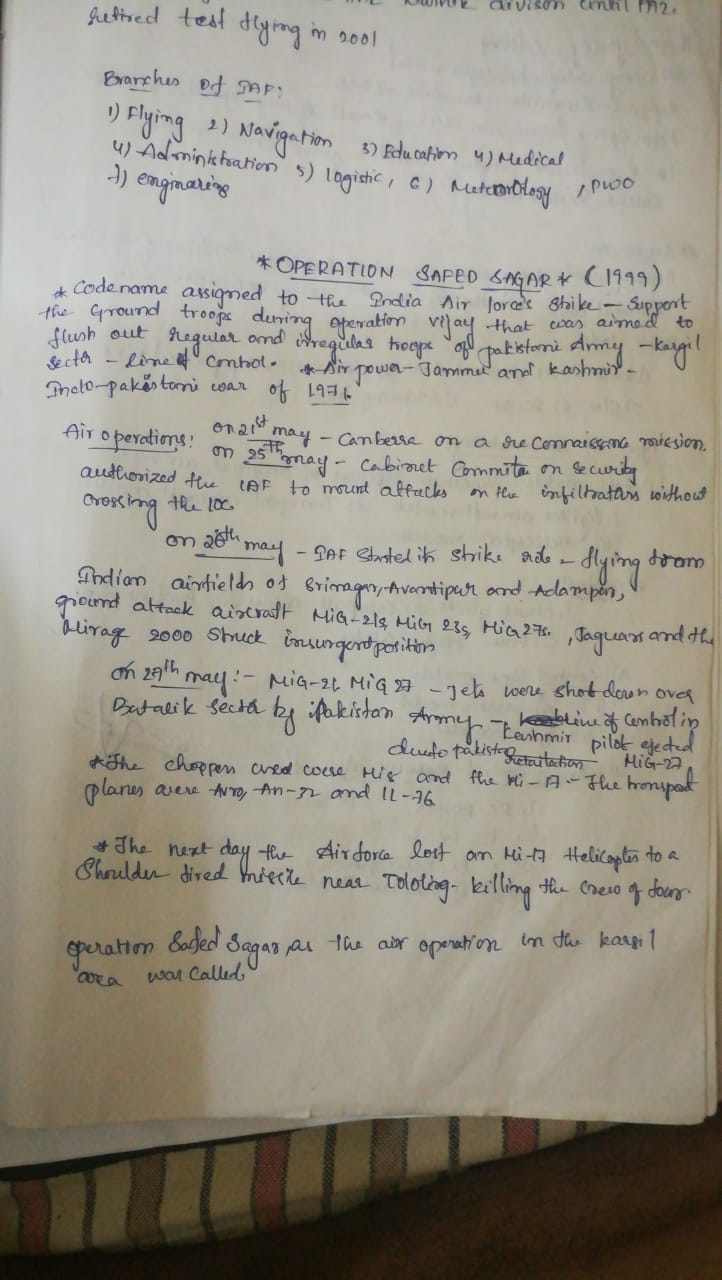 divison until PA2.
retired test flying in 2001
Branches of IAF:
1) Flying 2) Navigation 3) Education 4) Medical
4) Administration 5) logistic, 6) Meteorology, PWO
7) enginaring
* OPERATION SAFED SAGAR * (1999)
* Codename assigned to the India Air force's Strike - Support
the Ground troops during operation vijay that was aimed to
flush out regular and irregular troops of pakistani Army - kargil
Sector - Line of Control. * Air power - Jammu and Kashmir -
Indo-pakistani war of 1971.
Air operations: on 21st may - Canberra on a reconnaissance mission.
on 25th may - Cabinet Committe on security
authorized the IAF to mount attacks on the infiltrators without
Crossing the LOC
on 26th may - IAF Started its strike role - flying from
Indian airfields of Srinagar, Avantipur and Adampur,
ground attack aircraft MiG-21s, MiG 23s, MiG 27s, Jaguars and the
Mirage 2000 Struck insurgent position
on 27th may :- MiG-21, MiG 27 - Jets were shot down over
Batalik Sector by Pakistan Army - Line of Control in
Kashmir pilot ejected
due to pakistan retaliation MiG-27
* The choppers used were Mi8 and the Mi-17 - The transport
planes were Avro, An-32 and IL-76
* The next day the Airforce lost an Mi-17 Helicopter to a
Shoulder fired missile near Tololing - killing the Crew of four.
operation Safed Sagar, as the air operation in the kargil
area was Called